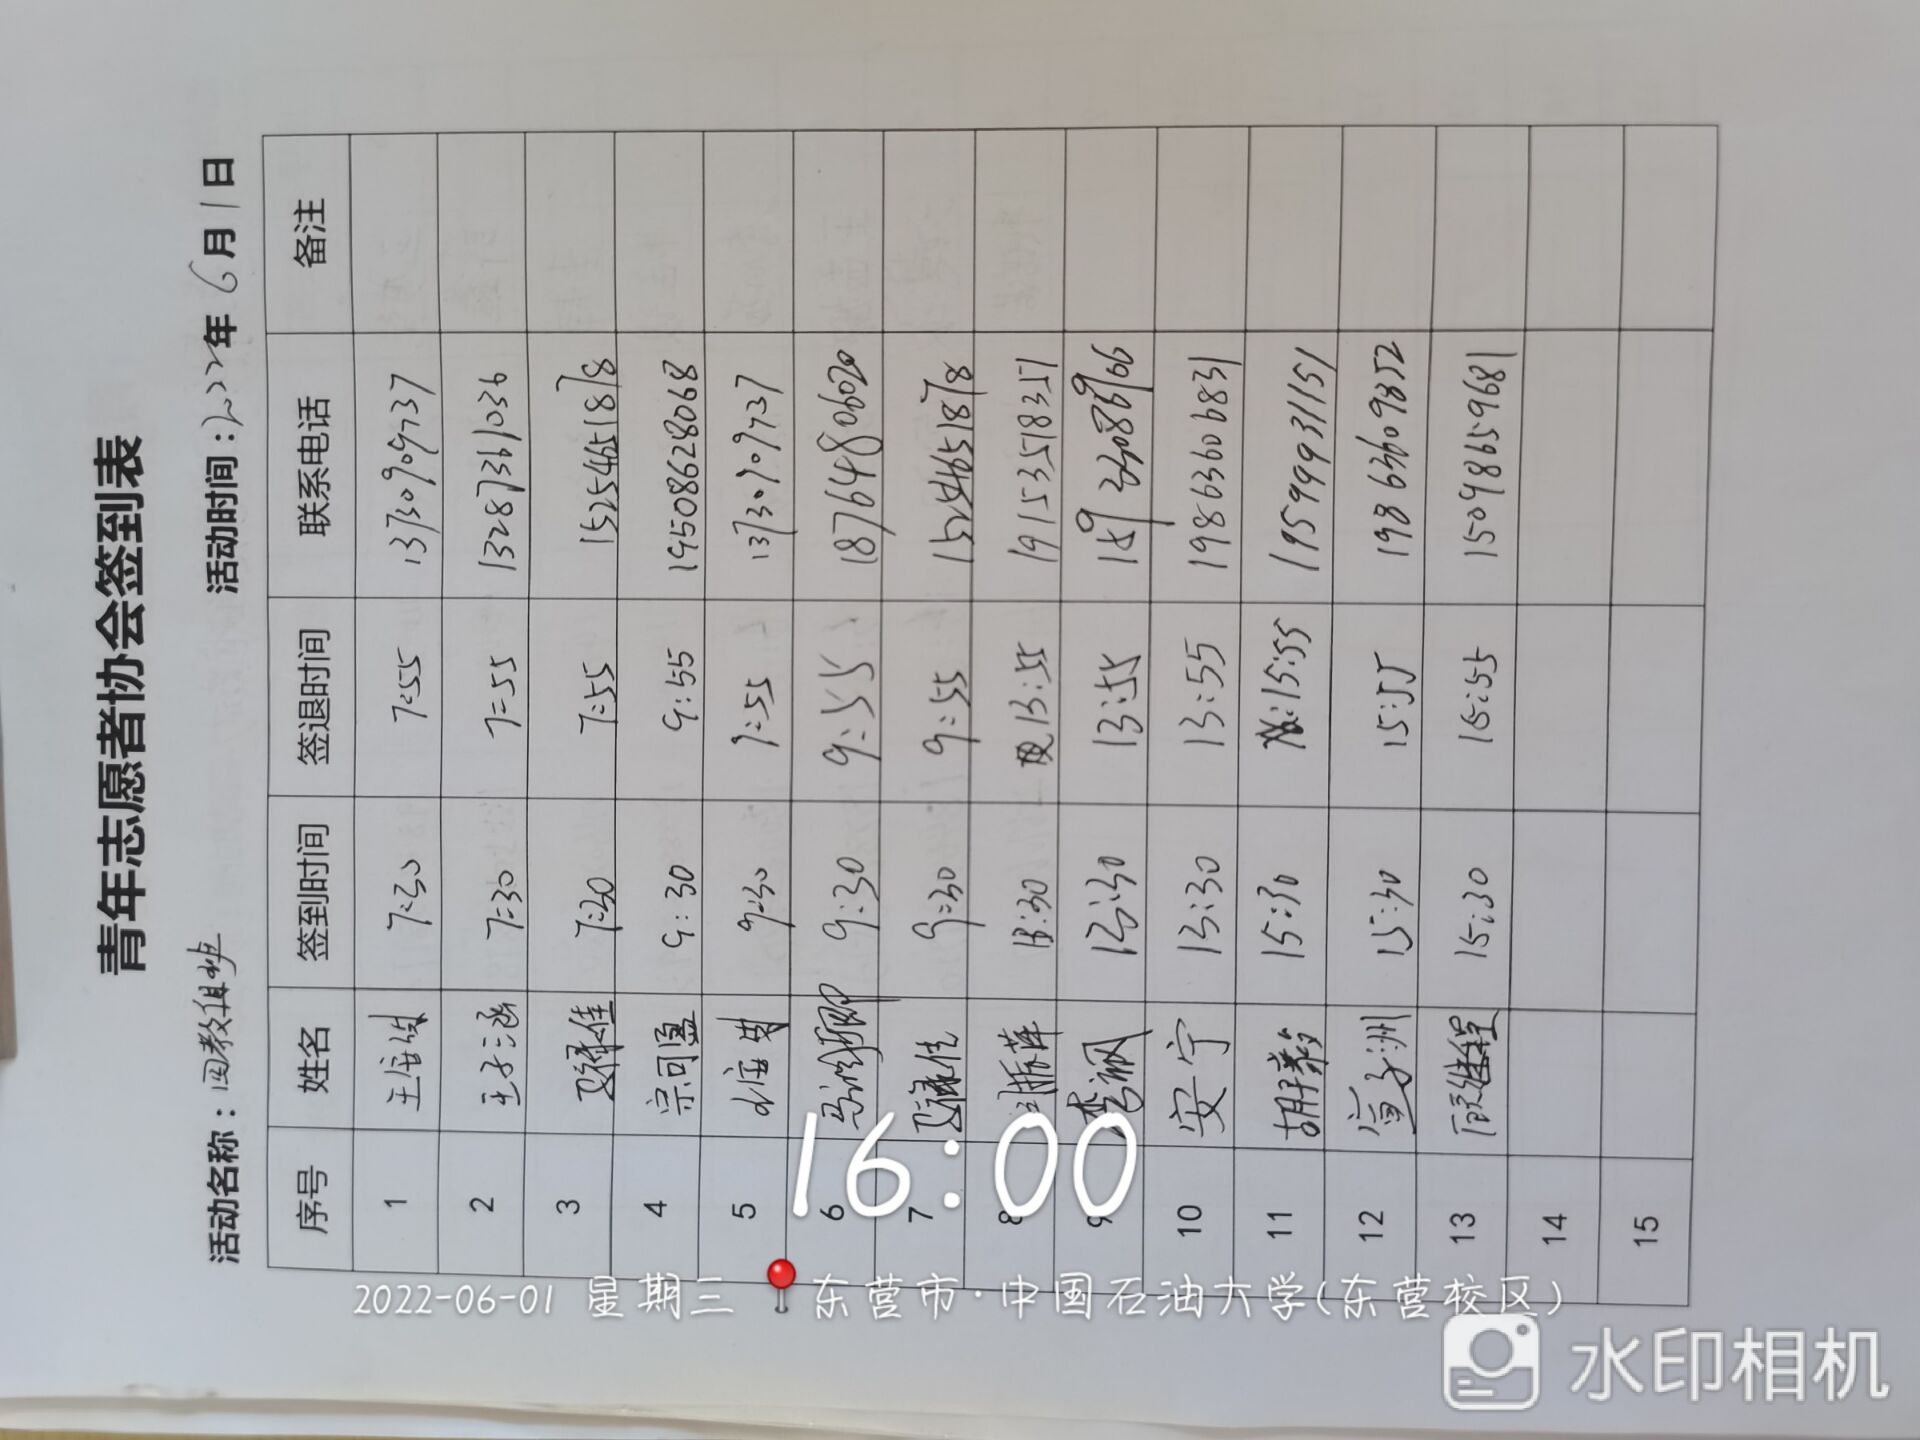 青年志愿者协会签到表
活动名称： 活动时间：2022年6月1日
序号 姓名 签到时间 签退时间 联系电话 备注
1 7:30 7:55 13730909737
2 王子涵 7:30 7:55 13287361036
3 7:30 7:55 15254651878
4 宗可盈 9:30 9:55 19508628068
5 9:30 9:55 13730909737
6 9:30 9:55 18764806020
7 9:30 9:55 15254651878
8 13:30 13:55 19153518351
9 13:30 13:55
10 安宁 13:30 13:55 19863606831
11 15:30 15:55 19599931151
12 15:30 15:55 19863609852
13 15:30 15:55 15098659681
14
15
16:00
2022-06-01 星期三 东营市·中国石油大学(东营校区)
水印相机